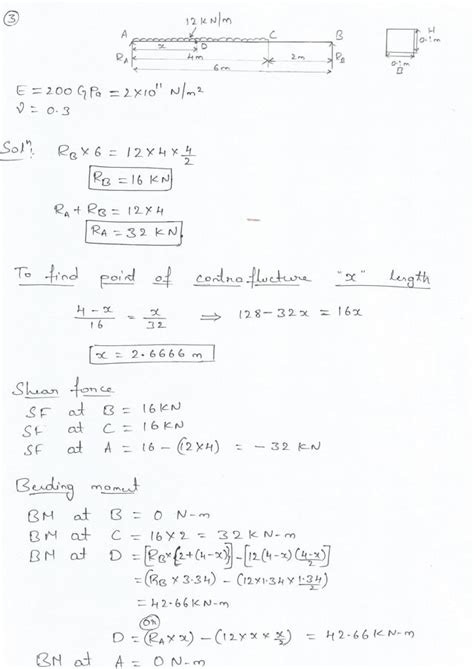 ③
12KN/m
A C B
x D
R_A 4m 2m R_B
6m
H
0.1m
0.1m
B
E = 200 GPa = 2×10¹¹ N/m²
ν = 0.3
Solⁿ:
R_B × 6 = 12 × 4 × 4/2
R_B = 16 KN
R_A + R_B = 12×4
R_A = 32 KN
To find point of contraflucture "x" length
(4-x)/16 = x/32 ⟹ 128-32x = 16x
x = 2.6666 m
Shear force
SF at B = 16KN
SF at C = 16KN
SF at A = 16 - (12×4) = -32 KN
Bending moment
BM at B = 0 N-m
BM at C = 16×2 = 32 KN-m
BM at D = [R_B×{2+(4-x)}] - [12(4-x)(4-x)/2]
= (R_B × 3.34) - (12×1.34×1.34/2)
= 42.66KN-m
(OR)
D = (R_A×x) - (12×x×x/2) = 42.66KN-m
BM at A = 0 N-m